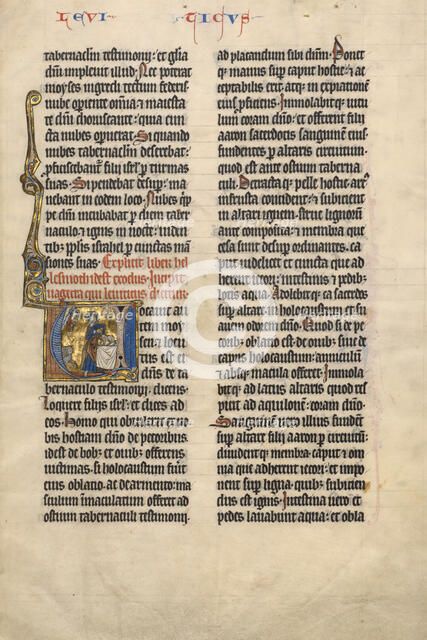 LEVI TICUS
tabernaclm testimonij: et glia
dni impleuit illud. Nec poterat
moyses ingredi tectum federis
nube operiente omnia maiesta
te dni choruscante: quia cun
cta nubes operuerat. Siquando
nubes tabernaclm deserebat:
proficiscebant filij isrl p turmas
suas. Si pendebat desup: ma
nebant in eodem loco. Nubes qip
pe dni incubabat p diem taber
naculo: et ignis in nocte. uiden
tibus pplis israhel p cunctas man
siones suas. Explicit liber hel
lesmoth idest exodus. Incipit
uagecra qui leuiticus dicitur.
Uocauit au
tem moy
sen et locu
tus est ei
dns de ta
bernaculo testimonij. dicens.
Loquere filijs isrl. et dices ad
eos. Homo qui obtulerit ex uo
bis hostiam dno de pecoribus.
idest de bobus et ouibus offerens
uictimas: si holocaustum fuerit
eius oblatio. ac de armento: ma
sculum inmaculatum offeret ad
ostium tabernaculi testimonij.
ad placandum sibi dnm. Ponet
qz manus sup caput hostie: et ac
ceptabilis erit. atqz in expiationem
eius proficiens. Immolabitqz uitu
lum coram dno: et offerent filij
aaron sacerdotis sanguinem eius.
fundentes p altaris circuitum.
quod est ante ostium taberna
culi. Detractaqz pelle hostie. ar
tus in frusta concident: et subicient
in altari ignem. strue lignorum
ante composita: et membra que
cesa sunt desup ordinantes. ca
put uidelicet et cuncta que ad
herent iecori: intestinis et pedibus
lotis aqua. Adolebitqz ea sacerdos
sup altare in holocaustum: et su
auem odorem dno. Quod si de pe
coribus oblatio est de ouibus. siue de
capris holocaustum: anniculum
et absqz macula offeret. Immola
bitqz ad latus altaris quod res
picit ad aquilonem: coram dno.
Sanguinem uero illius fundent
sup altare filij aaron p circuitum:
diuidentqz membra. caput et om
nia que adherent iecori: et impo
nent sup ligna. quibus subicien
dus est ignis. Intestina uero et
pedes lauabunt aqua: et obla
Heritage Images